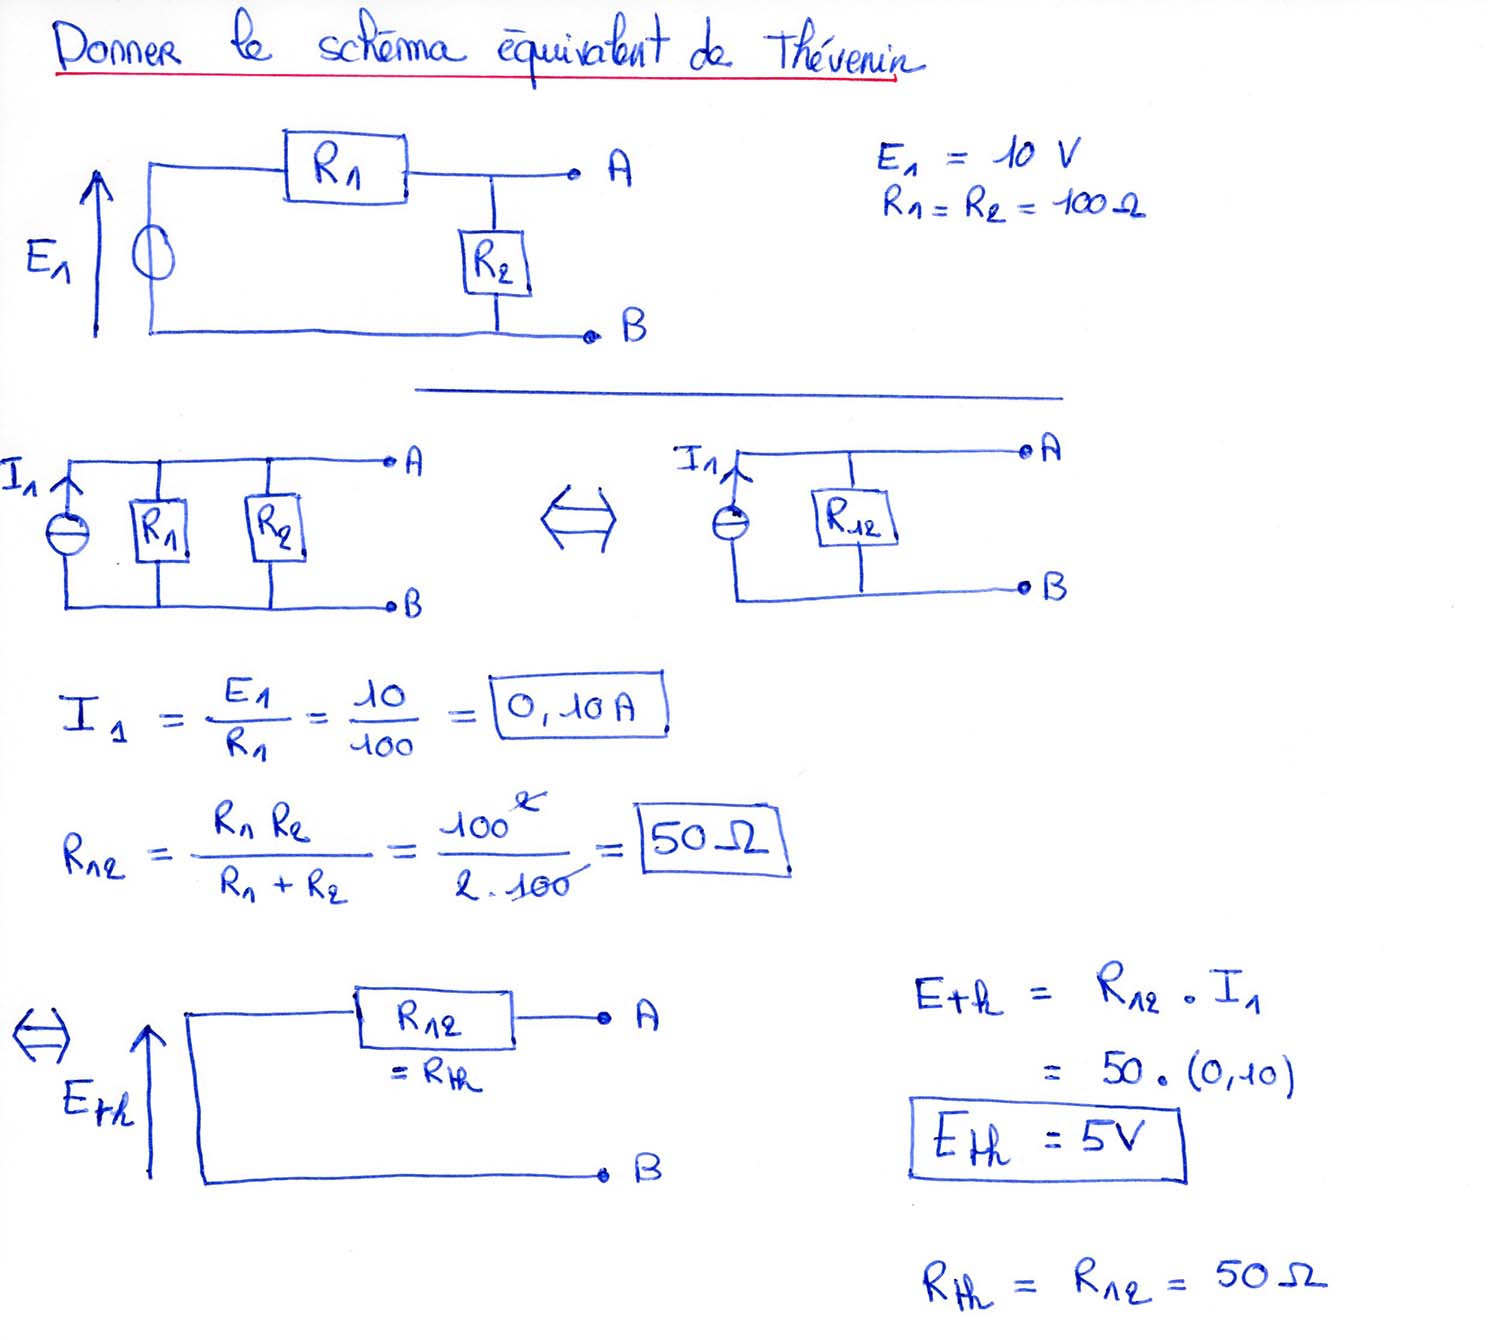 Donner le schéma équivalent de Thévenin
R1
A
E1 = 10 V
R1 = R2 = 100Ω
E1
R2
B
I1
R1
R2
A
B
⇔
I1
R12
A
B
I1 = E1/R1 = 10/100 = 0,10A
R12 = R1 R2 / (R1 + R2) = 100² / 2.100 = 50Ω
⇔
Eth
R12
= Rth
A
B
Eth = R12 . I1
= 50 . (0,10)
Eth = 5V
Rth = R12 = 50Ω